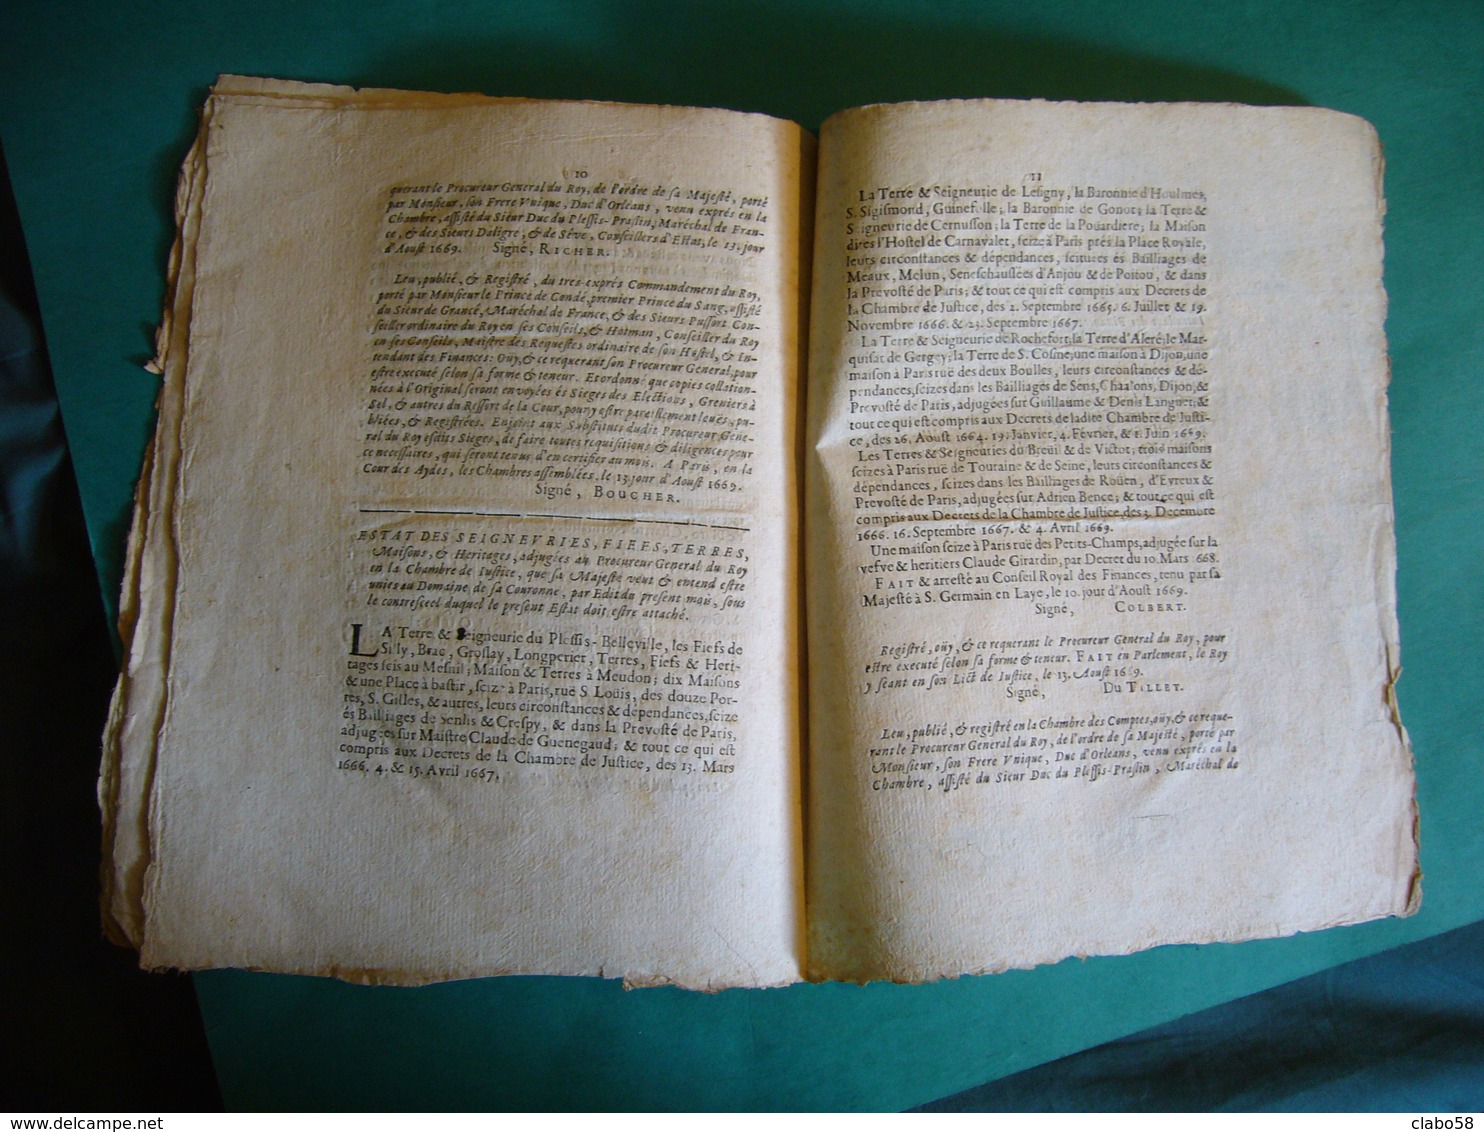 10
querant le Procureur General du Roy, de l'ordre de sa Majesté, porté
par Monsieur, son Frere Vnique, Duc d'Orleans, venu exprés en la
Chambre, assisté du Sieur Duc du Plessis-Praslin, Maréchal de Fran-
ce, & des Sieurs Daligre, & de Séve, Conseillers d'Estat, le 13. jour
d'Aoust 1669. Signé, RICHER.
Leu, publié, & Registré, du tres-exprés Commandement du Roy,
porté par Monsieur le Prince de Condé, premier Prince du Sang, assisté
du Sieur de Grancé, Maréchal de France, & des Sieurs Pussort Con-
seiller ordinaire du Roy en ses Conseils, & Hotman, Conseiller du Roy
en ses Conseils, Maistre des Requestes ordinaire de son Hostel, & In-
tendant des Finances: Oüy, & ce requerant son Procureur General, pour
estre executé selon sa forme & teneur. Et ordonné que copies collation-
nées à l'Original seront envoyées és Sieges des Elections, Greniers à
Sel, & autres du Ressort de la Cour, pour y estre pareillement leuës, pu-
bliées, & Registrées. Enjoint aux Substituts dudit Procureur Gene-
ral du Roy esdits Sieges, de faire toutes requisitions & diligences pour
ce necessaires, qui seront tenus d'en certifier au mois. A Paris, en la
Cour des Aydes, les Chambres assemblées, le 13. jour d'Aoust 1669.
Signé, BOUCHER.
ESTAT DES SEIGNEVRIES, FIEFS, TERRES,
Maisons, & Heritages, adjugées au Procureur General du Roy
en la Chambre de Iustice, que sa Majesté veut & entend estre
unies au Domaine de sa Couronne, par Edit du present mois, sous
le contrescel duquel le present Estat doit estre attaché.
LA Terre & Seigneurie du Plessis-Belleville, les Fiefs de
Silly, Brac, Groslay, Longperier, Terres, Fiefs & Heri-
tages seis au Mesnil; Maison & Terres à Meudon; dix Maisons
& une Place à bastir, seize à Paris, ruë S. Loüis, des douze Por-
tes, S. Gilles, & autres, leurs circonstances & dépendances, seize
és Bailliages de Senlis & Crespy, & dans la Prevosté de Paris,
adjugées sur Maistre Claude de Guenegaud; & tout ce qui est
compris aux Decrets de la Chambre de Justice, des 13. Mars
1666. 4. & 15. Avril 1667.
11
La Terre & Seigneurie de Lesigny, la Baronnie d'Houlmes,
S. Sigismond, Guinefolle; la Baronnie de Gonor; la Terre &
Seigneurie de Cernusson; la Terre de la Pouardiere; la Maison
dires l'Hostel de Carnavalet, seize à Paris prés la Place Royale,
leurs circonstances & dépendances, scituées és Bailliages de
Meaux, Melun, Seneschaussées d'Anjou & de Poitou, & dans
la Prevosté de Paris; & tout ce qui est compris aux Decrets de
la Chambre de Justice, des 2. Septembre 1665. 6. Juillet & 19.
Novembre 1666. & 23. Septembre 1667.
La Terre & Seigneurie de Rochefort, la Terre d'Aleré; le Mar-
quisat de Gergey; la Terre de S. Cosme; une maison à Dijon, une
maison à Paris ruë des deux Boulles, leurs circonstances & dé-
pendances, seizes dans les Bailliages de Sens, Chaalons, Dijon, &
Prevosté de Paris, adjugées sur Guillaume & Denis Languet; &
tout ce qui est compris aux Decrets de ladite Chambre de Justi-
ce, des 26. Aoust 1664. 19. Janvier, 4. Février, & 1. Juin 1669.
Les Terres & Seigneuries du Breuil & de Victot; trois maisons
seizes à Paris ruë de Touraine & de Seine, leurs circonstances &
dépendances, seizes dans les Bailliages de Roüen, d'Evreux &
Prevosté de Paris, adjugées sur Adrien Bence; & tout ce qui est
compris aux Decrets de la Chambre de Justice, des 3. Decembre
1666. 16. Septembre 1667. & 4. Avril 1669.
Une maison seize à Paris ruë des Petits-Champs, adjugée sur la
vefve & heritiers Claude Girardin, par Decret du 10. Mars 668.
FAIT & arresté au Conseil Royal des Finances, tenu par sa
Majesté à S. Germain en Laye, le 10. jour d'Aoust 1669.
Signé, COLBERT.
Registré, oüy, & ce requerant le Procureur General du Roy, pour
estre executé selon sa forme & teneur. FAIT en Parlement, le Roy
y seant en son Lict de Justice, le 13. Aoust 1669.
Signé, DU TILLET.
Leu, publié, & registré en la Chambre des Comptes, oüy, & ce reque-
rant le Procureur General du Roy, de l'ordre de sa Majesté, porté par
Monsieur, son Frere Vnique, Duc d'Orleans, venu exprés en la
Chambre, assisté du Sieur Duc du Plessis-Praslin, Maréchal de
delcampe.net
clabo58